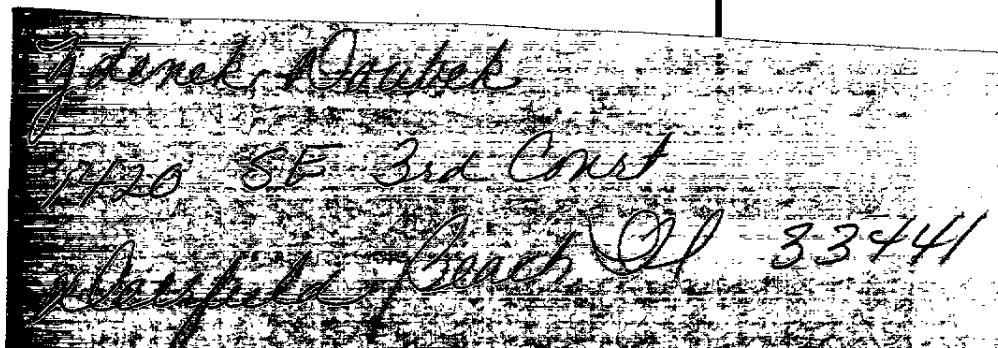 Zdenek Doubek
1420 SE 3rd Court
Deerfield Beach Fl 33441